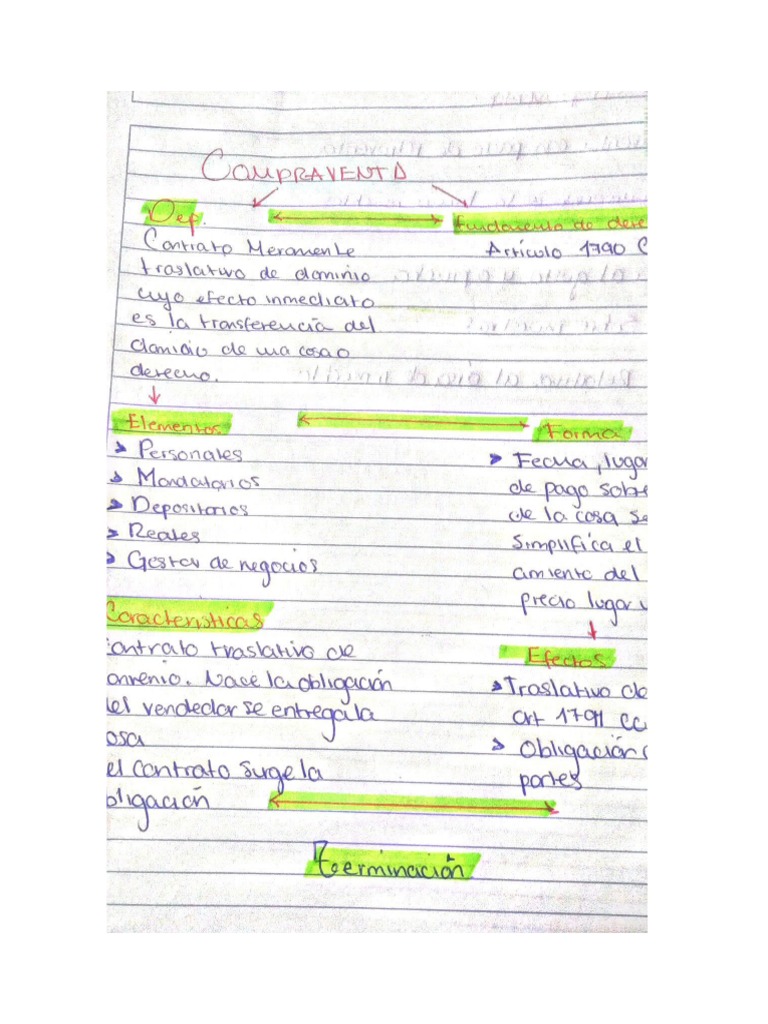 COMPRAVENTA
Def.
Contrato Meramente
traslativo de dominio
cuyo efecto inmediato
es la transferencia del
domicio de una cosa o
derecho.
fundamento de dere
Artículo 1790 C
Elementos
Personales
Mandatarios
Depositarios
Reales
Gestor de negocios
Forma
Fecha, lugar
de pago sobre
de la cosa se
simplifica el
amiento del
precio lugar
Caracteristicas
contrato traslativo de
onvenio. Nace la obligación
del vendedor se entrega la
osa
el contrato surge la
obligación
Efectos
Traslativo de
art 1791 CC
Obligación
partes
Teerminación